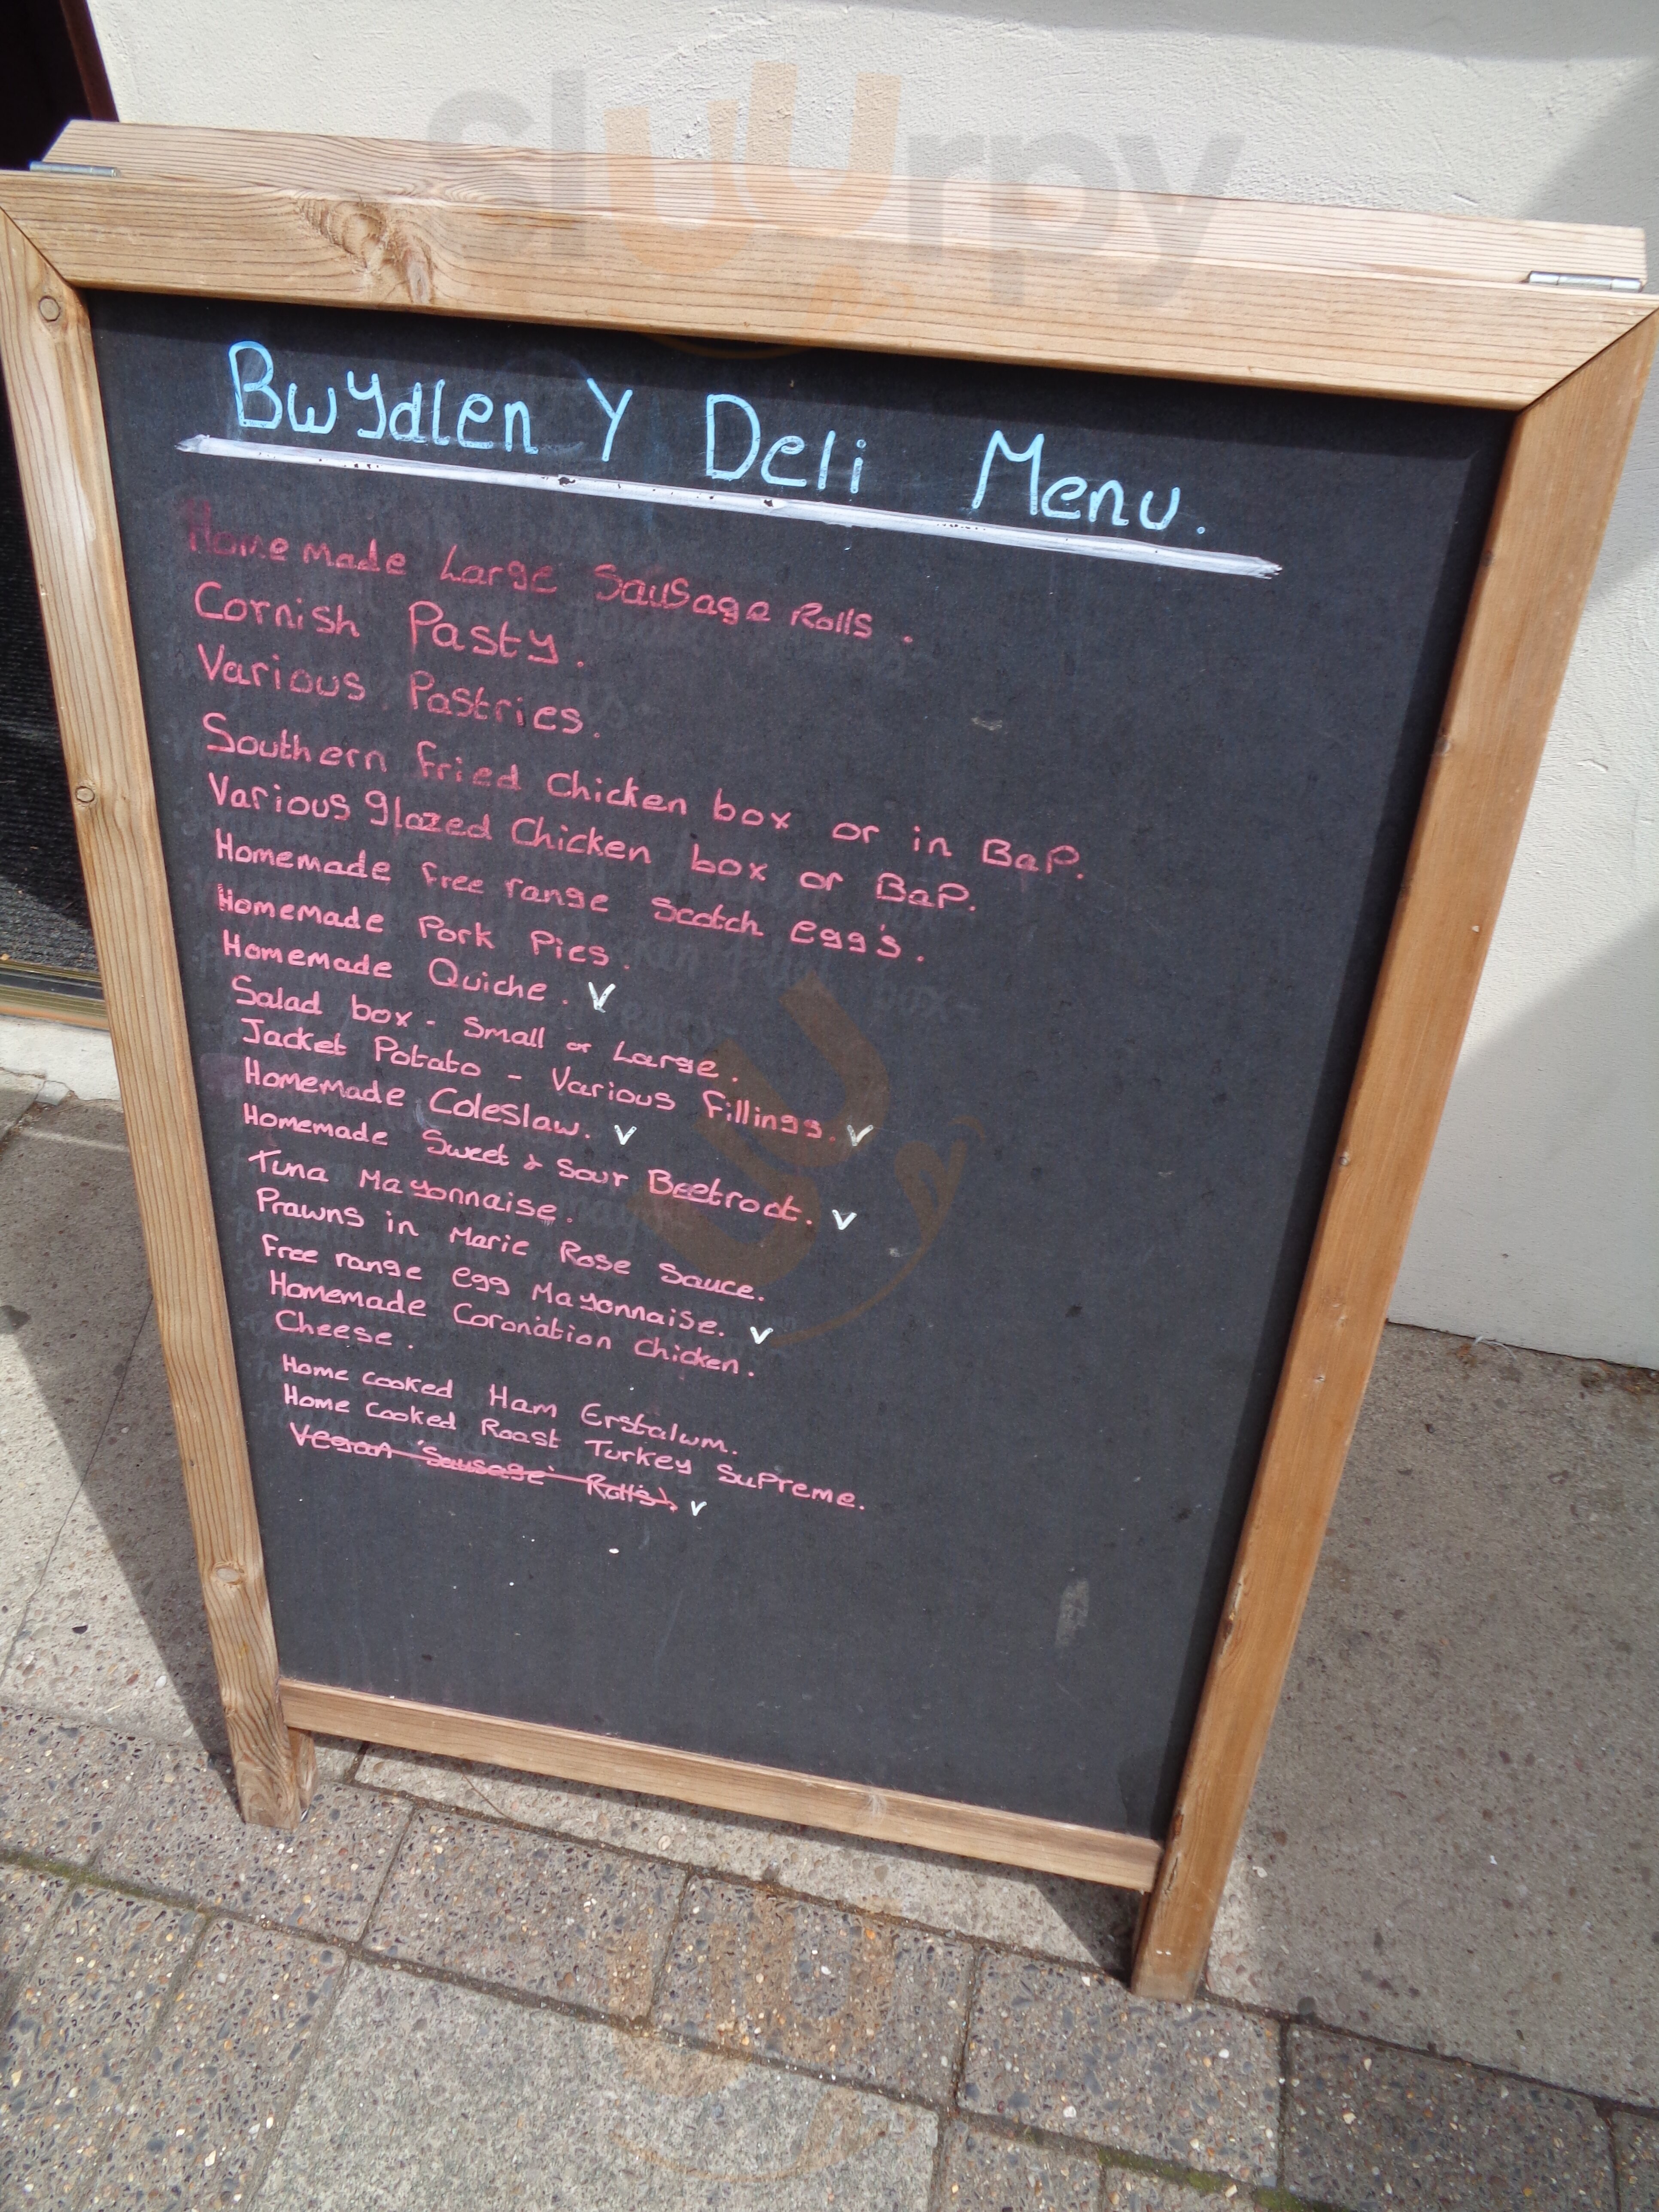 sluurpy
Bwydlen Y Deli Menu.
Homemade Large Sausage Rolls.
Cornish Pasty.
Various Pastries.
Southern fried Chicken box or in BaP.
Various glazed Chicken box or BaP.
Homemade free range Scotch egg's.
Homemade Pork Pies.
Homemade Quiche. V
Salad box - Small or Large.
Jacket Potato - Various fillings. V
Homemade Coleslaw. V
Homemade Sweet & Sour Beetroot. V
Tuna Mayonnaise.
Prawns in Marie Rose Sauce.
free range egg Mayonnaise. V
Homemade Coronation Chicken.
Cheese.
Home cooked Ham Erstalwm.
Home Cooked Roast Turkey Supreme.
Vegan 'Sausage' Rolls. V